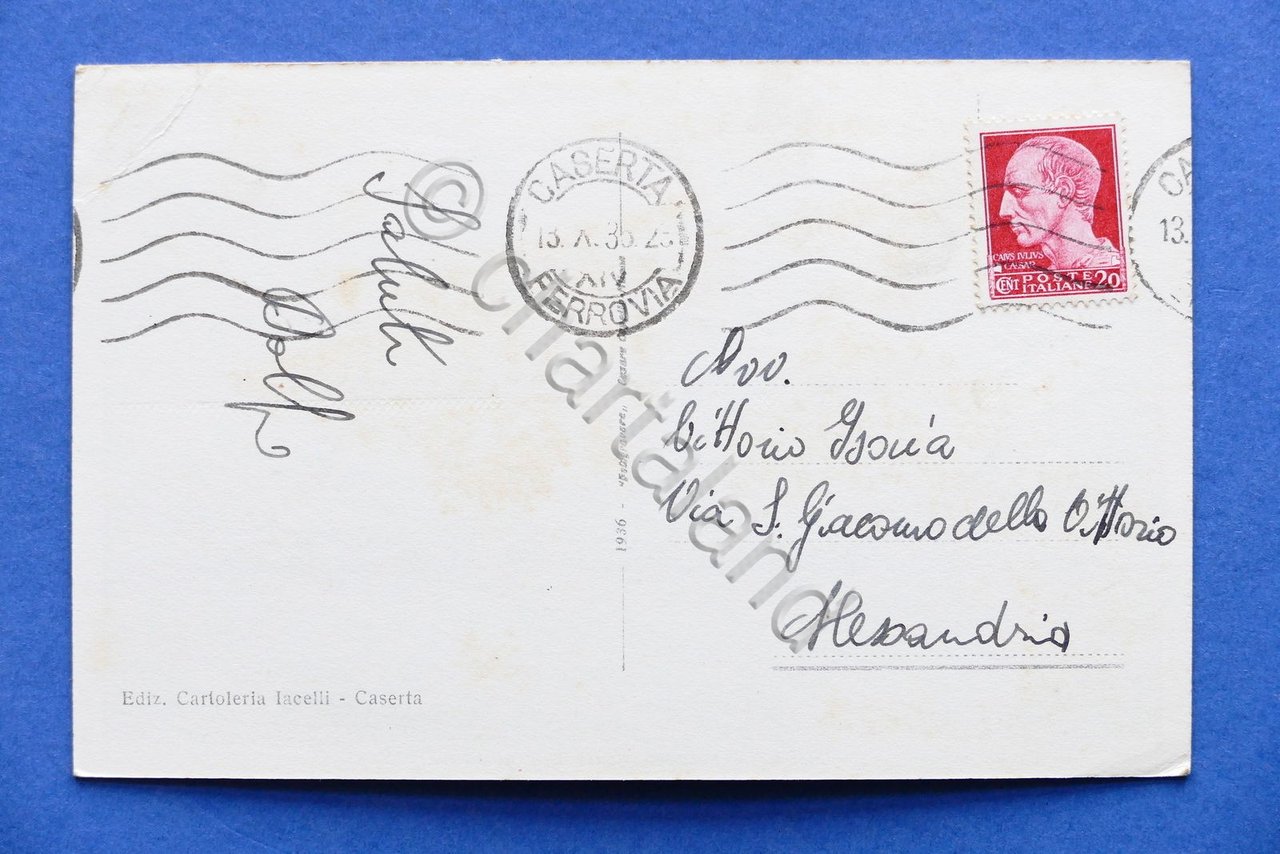 Saluti
CASERTA
13. X. 36. 23
XIV
FERROVIA
CAIVS IVLIVS
CAESAR
CENT POSTE
ITALIANE 20
CA
13.
Avv.
Vittorio Isoria
Via S. Giacomo della Vittoria
Alessandria
1936 -
Ediz. Cartoleria Iacelli - Caserta
© Chartaland